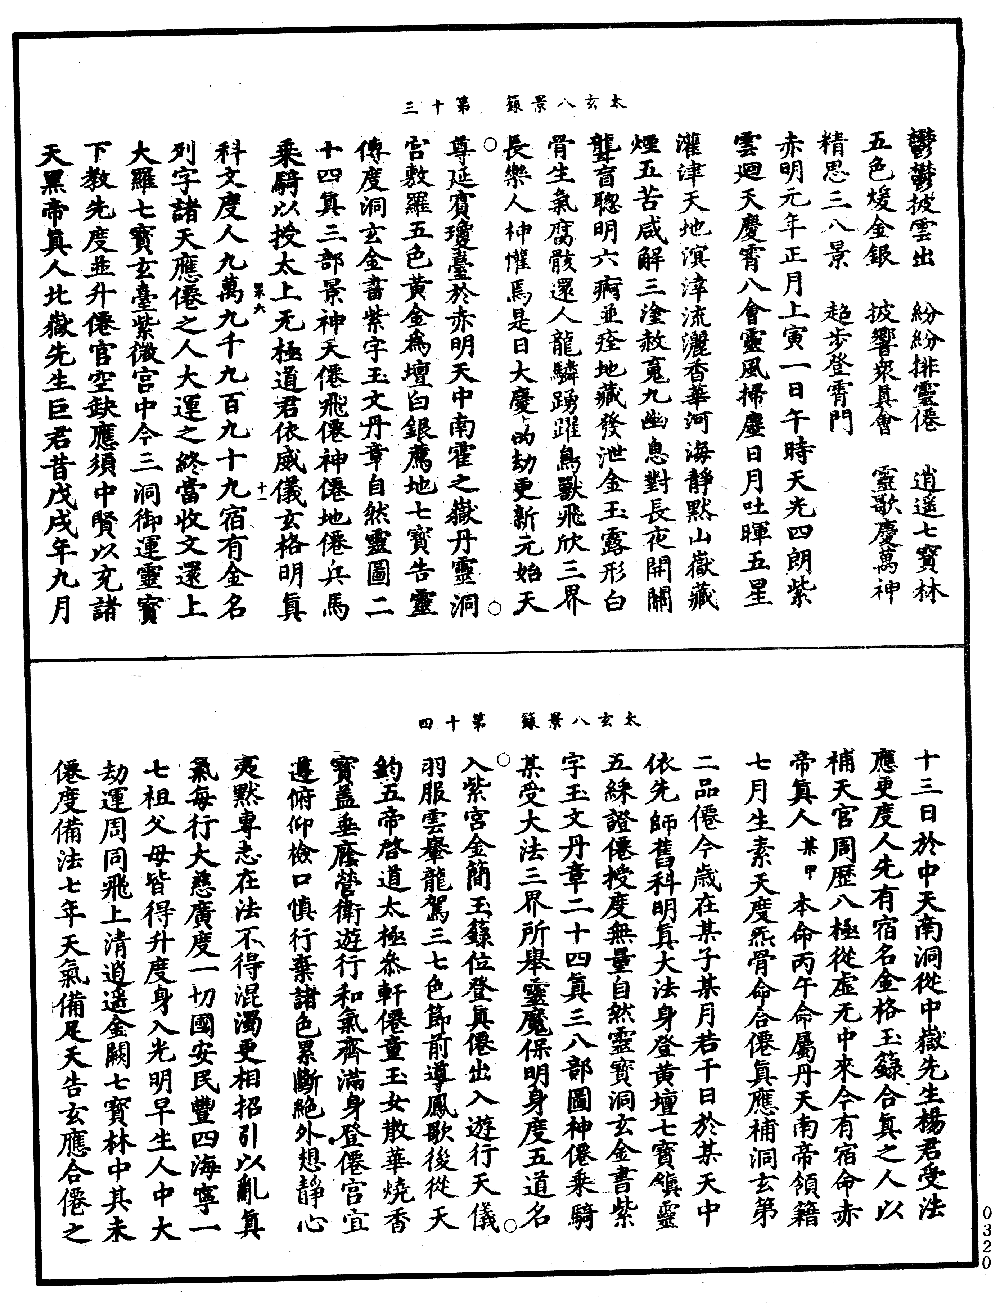 太玄八景籙　第十三
鬱鬱披雲出　紛紛排雲僊　逍遥七寳林
五色煥金銀　披響衆真會　靈歌慶萬神
精思三八景　超步登霄門
赤明元年正月上寅一日午時天光四朗紫
雲廻天慶霄八會靈風掃塵日月吐暉五星
灌津天地溟涬流灑香華河海靜默山嶽藏
煙五苦咸解三塗赦寃九幽息對長夜開關
聾盲聰明六痾並痊地藏發泄金玉露形白
骨生氣腐骸還人龍鱗踴躍鳥獸飛欣三界
長樂人神懽焉是日大慶的劫更新元始天
尊延賓瓊臺於赤明天中南霍之嶽丹靈洞
宮敷羅五色黄金爲壇白銀薦地七寳告靈
傳度洞玄金書紫字玉文丹章自然靈圖二
十四真三部景神天僊飛僊神僊地僊兵馬
乘騎以授太上无極道君依威儀玄格明真
第六　十一
科文度人九萬九千九百九十九宿有金名
列字諸天應僊之人大運之終當收文還上
大羅七寳玄臺紫微宫中今三洞御運靈寳
下教先度並升僊官空缺應須中賢以充諸
天黑帝真人北嶽先生巨君昔戊戌年九月
太玄八景籙　第十四
十三日於中天南洞從中嶽先生楊君受法
應更度人先有宿名金格玉籙合真之人以
補天官周歷八極從虛无中來今有宿命赤
帝真人某甲本命丙午命屬丹天南帝領籍
七月生素天度炁骨命合僊真應補洞玄第
二品僊今歲在某子某月若干日於某天中
依先師舊科明真大法身登黄壇七寳鎮靈
五綵證僊授度無量自然靈寳洞玄金書紫
字玉文丹章二十四真三八部圖神僊乘騎
某受大法三界所舉靈魔保明身度五道名
入紫宫金簡玉籙位登真僊出入遊行天儀
羽服雲轝龍駕三七色節前導鳳歌後從天
鈞五帝啓道太極叅軒僊童玉女散華燒香
寳蓋垂廕營衛遊行和氣齊滿身登僊宫宜
邊俯仰檢口慎行棄諸色累斷絶外想靜心
夷默專志在法不得混濁更相招引以亂真
氣每行大慈廣度一切國安民豐四海寧一
七祖父母皆得升度身入光明早生人中大
劫運周同飛上清逍遥金闕七寳林中其未
僊度備法七年天氣備足天告玄應合僊之
0320